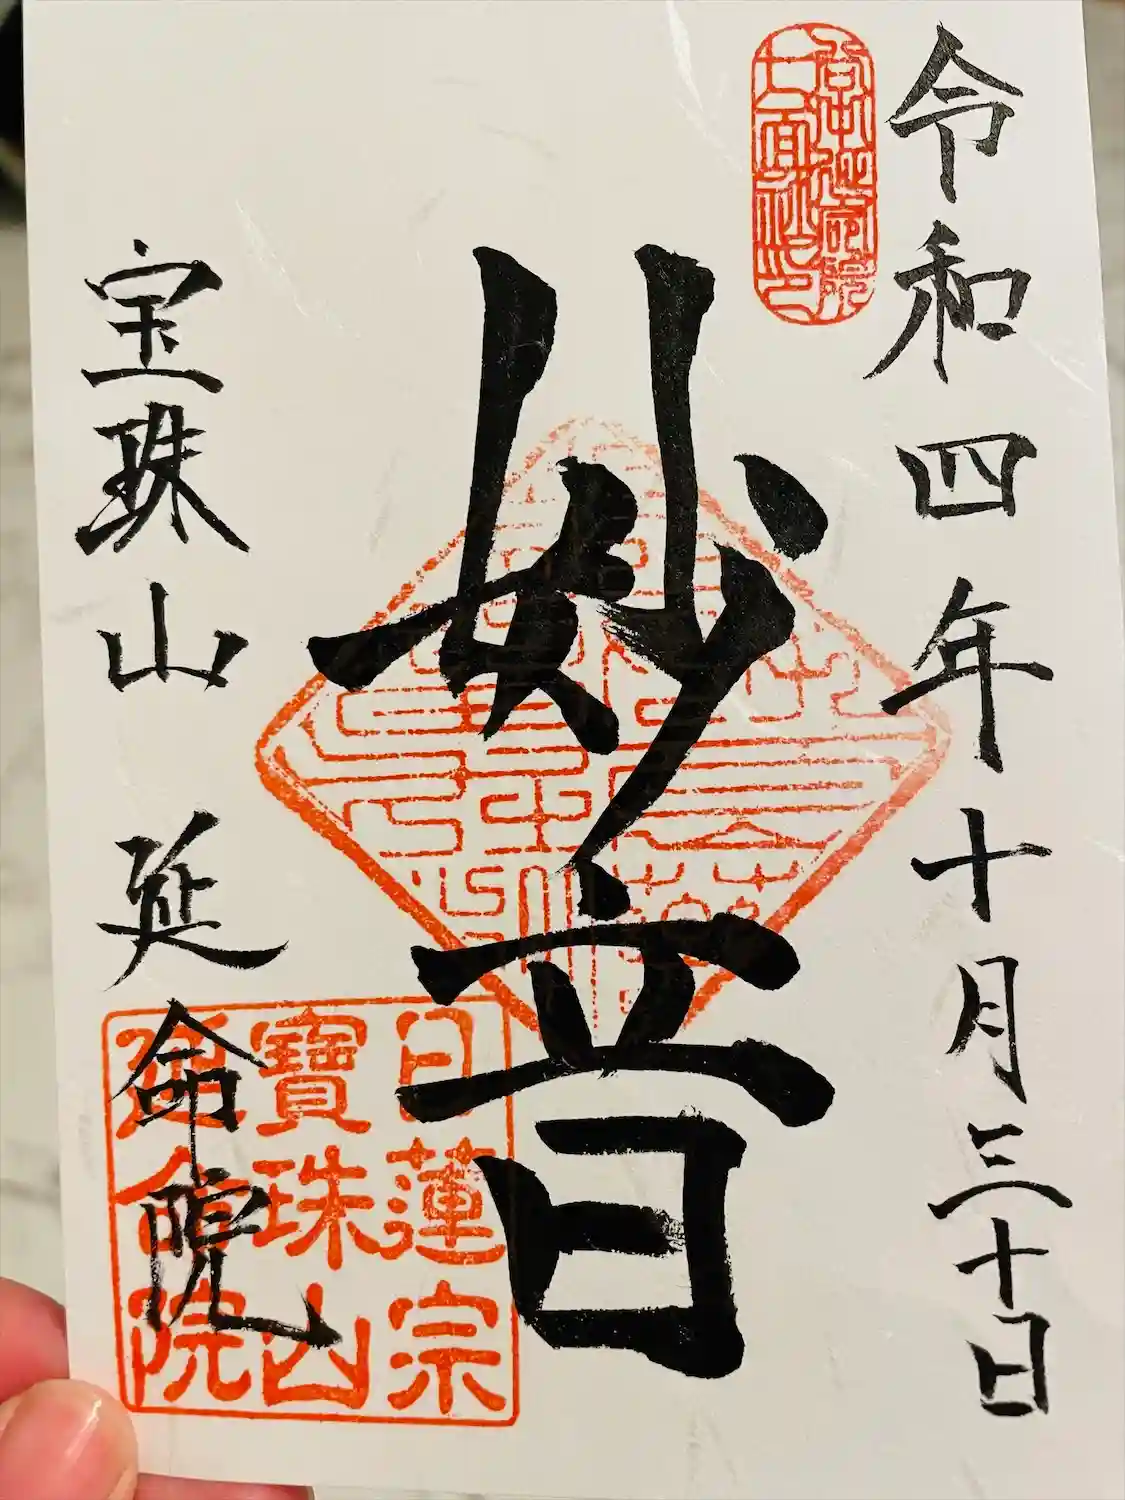 令和四年十月三十日
妙音
宝珠山 延命院
日蓮宗
寶珠山
延命院